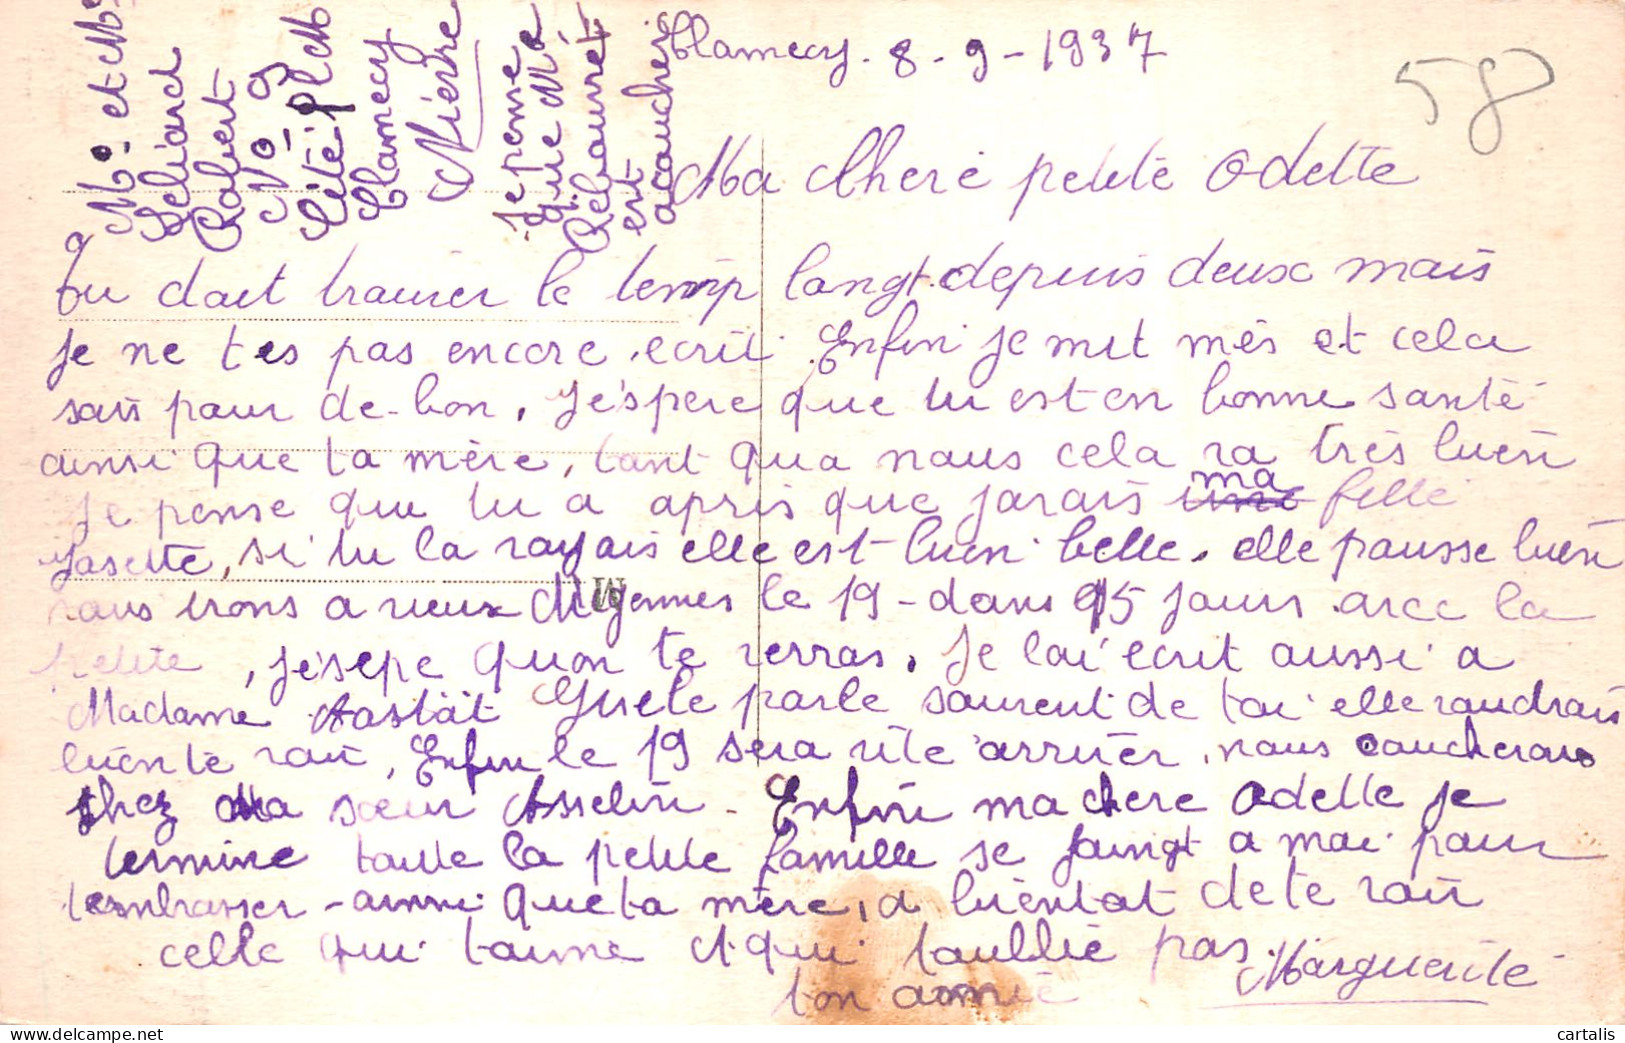 Clamecy. 8-9-1937
58
Ma Chere petite Odette
tu doit trouver le temp longt. depuis deux mois
je ne tes pas encore ecrit. Enfin je mit mês et cela
sait pour de-bon, J'éspere que tu est en bonne santé
ainsi que ta mère, tant qua nous cela va très bien
Je pense que tu a apris que javais ma fille
Josette, si tu la voyais elle est bien belle. elle pousse bien
nous irons a vieux Migennes le 19-dans 15 jours avec la
petite, j'ésepe quon te verras. Je lai écrit aussi a
Madame Gisele parle souvent de toi elle voudrais
bien te voir, Enfin le 19 sera vite arriver, nous coucherons
chez Ma sœur Asselin - Enfin ma chere Odette je
termine toute la petite famille se joingt a moi pour
tembrasser - ainsi que ta mère, a bientot de te voir
celle qui taime et qui toublie pas.
ton amie
Marguerite
Mr et Mme
Seliard
Robert
No 9
Cité P L M
Clamecy
Nièvre
Je pense
que Me
Rebouvrét
est
acoucher